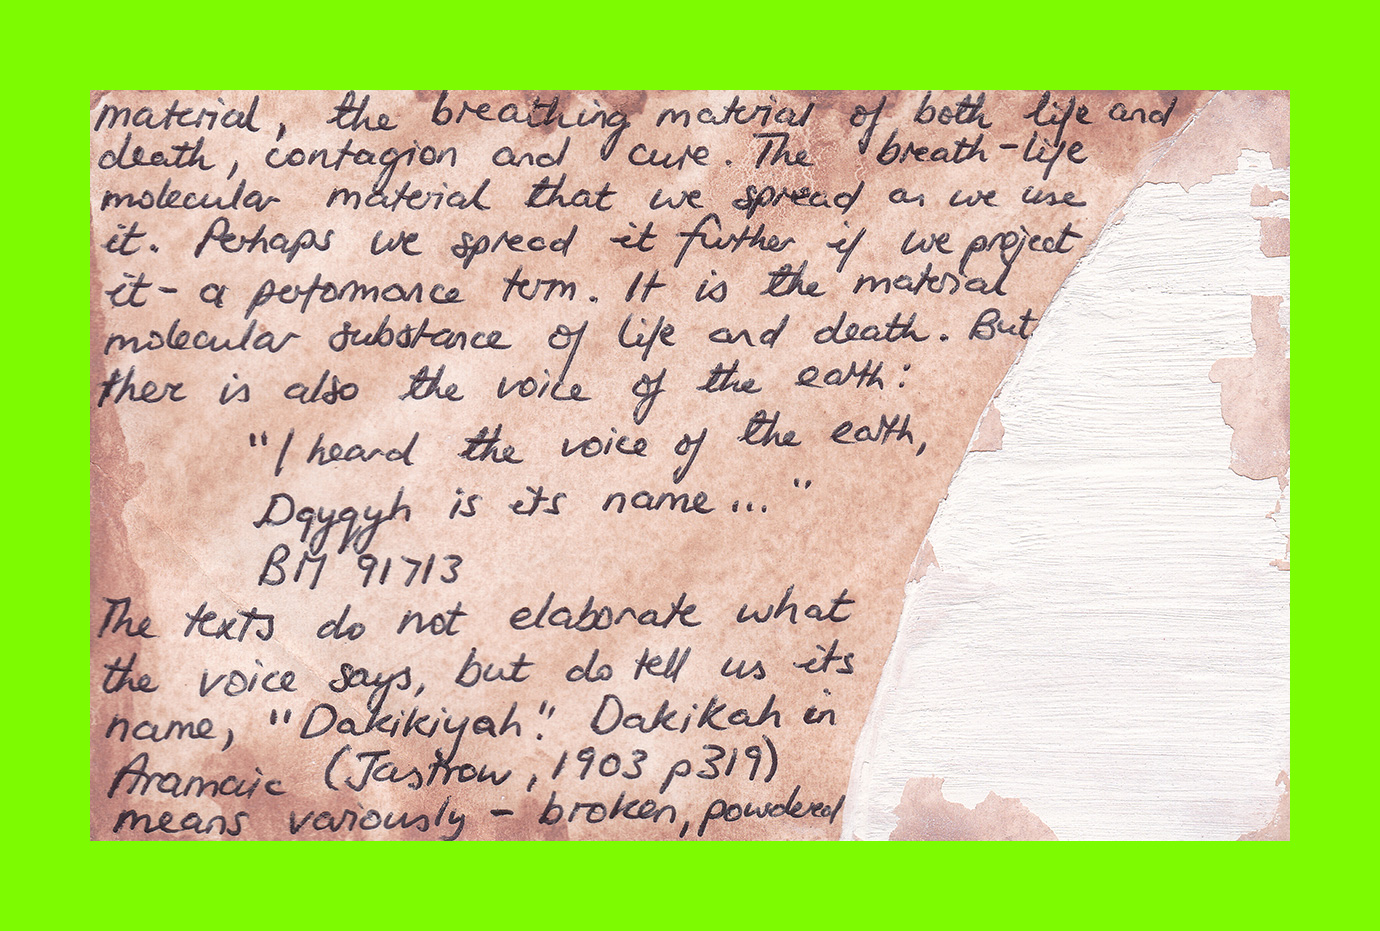 material, the breathing material of both life and
death, contagion and cure. The breath-life
molecular material that we spread as we use
it. Perhaps we spread it further if we project
it- a performance term. It is the material
molecular substance of life and death. But
ther is also the voice of the earth:
"I heard the voice of the earth,
Dqyqyh is its name..."
BM 91713
The texts do not elaborate what
the voice says, but do tell us its
name, "Dakikiyah". Dakikah in
Aramaic (Jastrow, 1903 p319)
means variously - broken, powdered